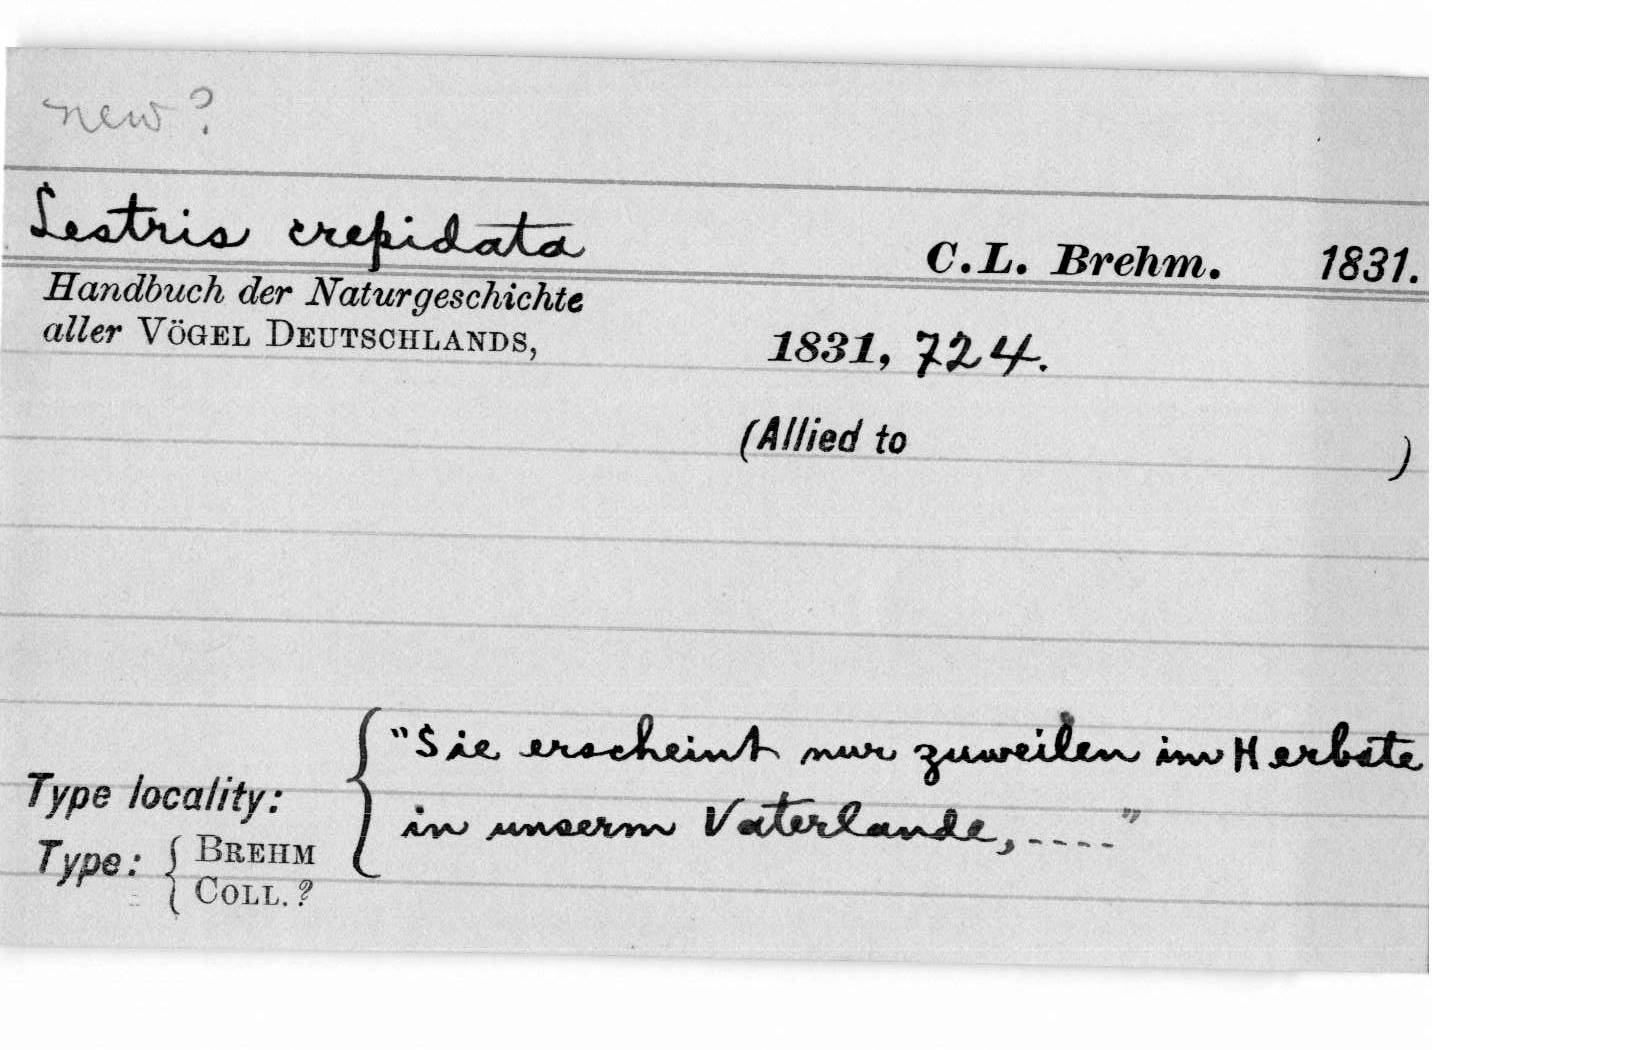 new?
Lestris crepidata C.L. Brehm. 1831.
Handbuch der Naturgeschichte
aller VÖGEL DEUTSCHLANDS, 1831, 724.
(Allied to )
"Sie erscheint nur zuweilen im Herbste
Type locality:
in unserm Vaterlande,....."
Type: { BREHM
COLL.?